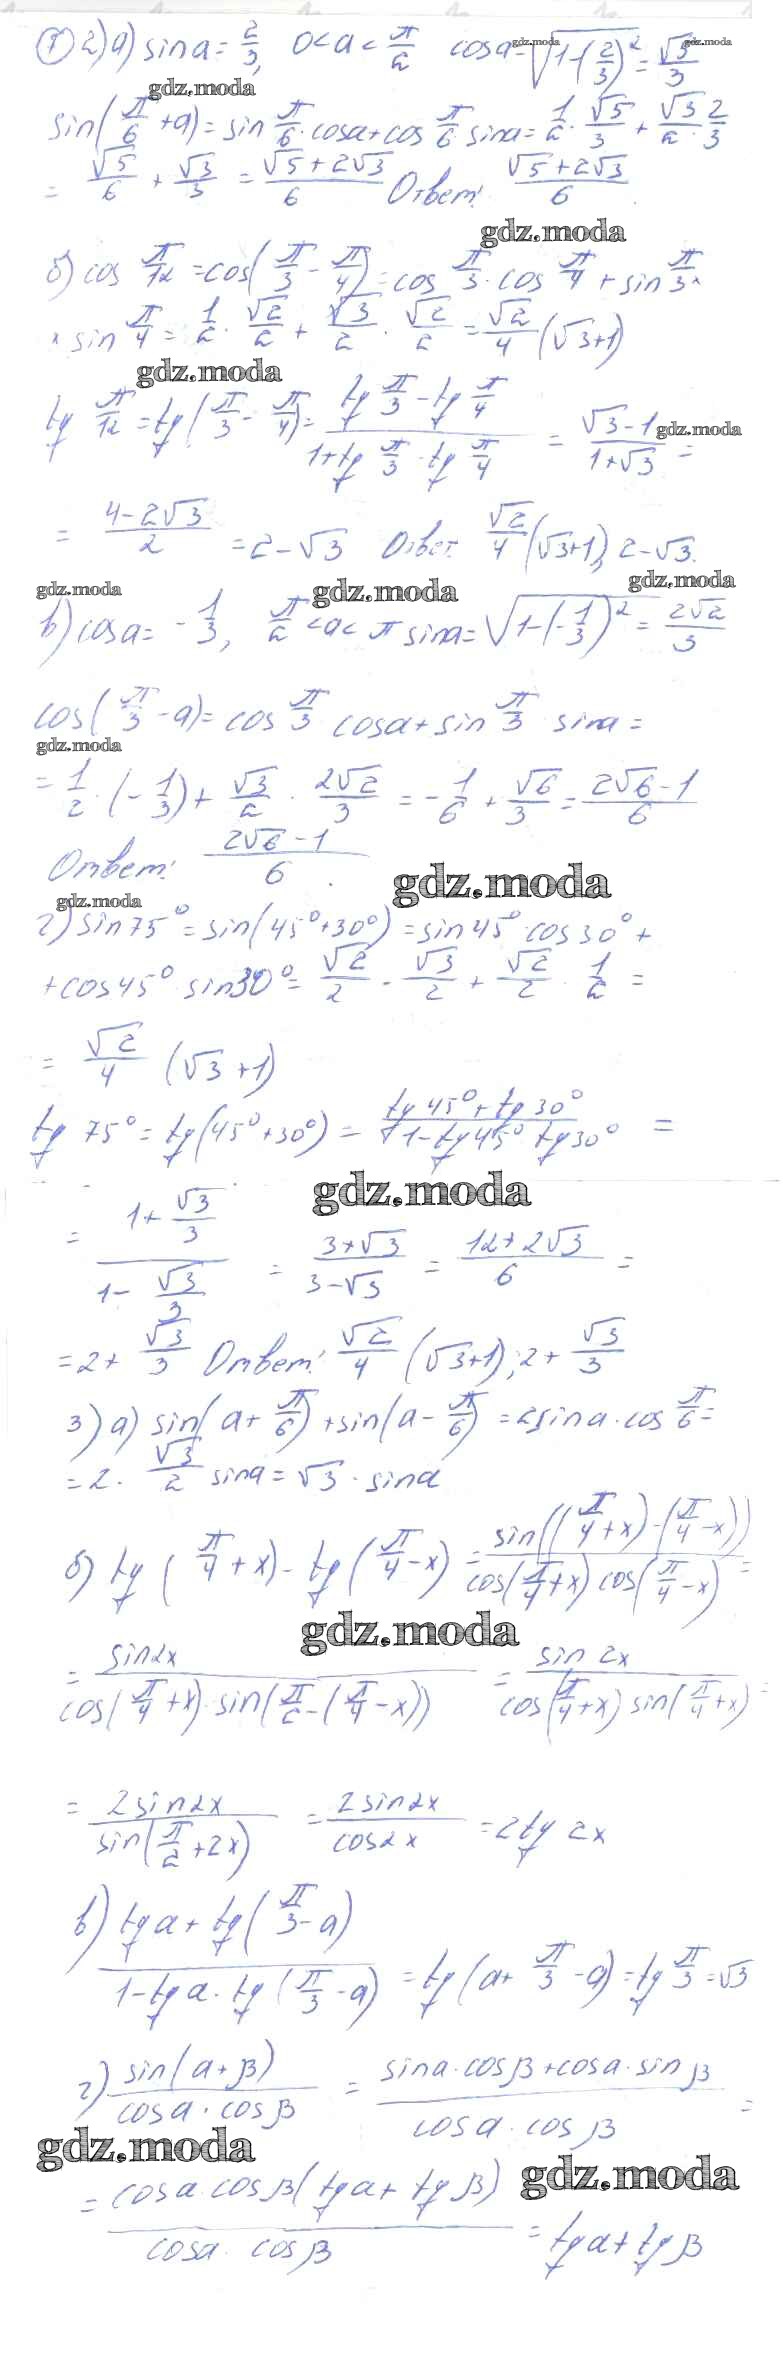 ① 2) а) sin a = 2/3, 0 < a < π/2 cos a = √(1-(2/3)²) = √5/3
gdz.moda
gdz.moda
gdz.moda
sin(π/6 + a) = sin π/6 · cos a + cos π/6 sin a = 1/2 · √5/3 + √3/2 · 2/3
= √5/6 + √3/3 = (√5 + 2√3)/6 Ответ: (√5 + 2√3)/6.
gdz.moda
б) cos π/12 = cos(π/3 - π/4) = cos π/3 · cos π/4 + sin π/3 ×
× sin π/4 = 1/2 · √2/2 + √3/2 · √2/2 = √2/4 (√3+1)
gdz.moda
tg π/12 = tg(π/3 - π/4) = (tg π/3 - tg π/4)/(1 + tg π/3 · tg π/4) = (√3 - 1)/(1 + √3) =
gdz.moda
= (4 - 2√3)/2 = 2 - √3 Ответ. √2/4 (√3+1), 2 - √3.
gdz.moda gdz.moda gdz.moda
в) cos a = -1/3, π/2 < a < π sin a = √(1-(-1/3)²) = 2√2/3
cos(π/3 - a) = cos π/3 cos a + sin π/3 sin a =
gdz.moda
= 1/2 · (-1/3) + √3/2 · 2√2/3 = -1/6 + √6/3 = (2√6 - 1)/6
Ответ: (2√6 - 1)/6.
gdz.moda
gdz.moda
г) sin 75° = sin(45° + 30°) = sin 45° · cos 30° +
+ cos 45° · sin 30° = √2/2 · √3/2 + √2/2 · 1/2 =
= √2/4 (√3 + 1)
tg 75° = tg(45° + 30°) = (tg 45° + tg 30°)/(1 - tg 45° tg 30°) =
gdz.moda
= (1 + √3/3)/(1 - √3/3) = (3 + √3)/(3 - √3) = (12 + 2√3)/6 =
= 2 + √3/3 Ответ: √2/4 (√3+1); 2 + √3/3
3) а) sin(a + π/6) + sin(a - π/6) = 2 sin a · cos π/6 =
= 2 · √3/2 sin a = √3 · sin a
б) tg(π/4 + x) - tg(π/4 - x) = sin((π/4 + x) - (π/4 - x))/(cos(π/4 + x) cos(π/4 - x)) =
gdz.moda
= sin 2x/(cos(π/4 + x) · sin(π/2 - (π/4 - x))) = sin 2x/(cos(π/4 + x) sin(π/4 + x)) =
= 2 sin 2x/sin(π/2 + 2x) = 2 sin 2x/cos 2x = 2 tg 2x
в) (tg a + tg(π/3 - a))/(1 - tg a · tg(π/3 - a)) = tg(a + π/3 - a) = tg π/3 = √3
г) sin(a + β)/(cos a · cos β) = (sin a · cos β + cos a · sin β)/(cos a · cos β) =
gdz.moda
gdz.moda
= cos a · cos β (tg a + tg β)/(cos a · cos β) = tg a + tg β